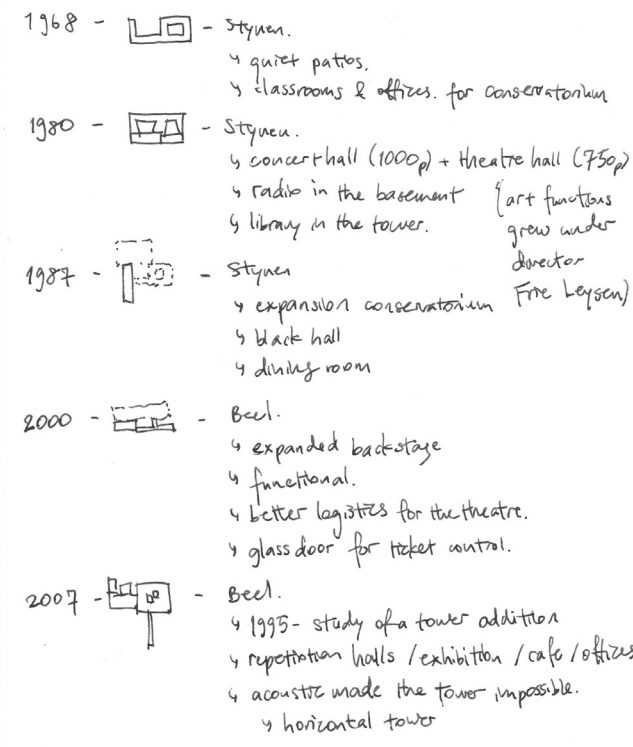 1968 - - Stynen.
↳ quiet patios.
↳ classrooms & offices. for conservatorium
1980 - - Stynen.
↳ concerthall (1000p) + theatre hall (750p)
↳ radio in the basement
↳ library in the tower.
(art functions
grew under
director
Frie Leysen)
1987 - - Stynen
↳ expansion conservatorium
↳ black hall
↳ dining room
2000 - - Beel.
↳ expanded backstage
↳ functional.
↳ better logistics for the theatre.
↳ glass door for ticket control.
2007 - - Beel.
↳ 1995 - study of a tower addition
↳ repetition halls / exhibition / cafe / offices
↳ acoustic made the tower impossible.
↳ horizontal tower